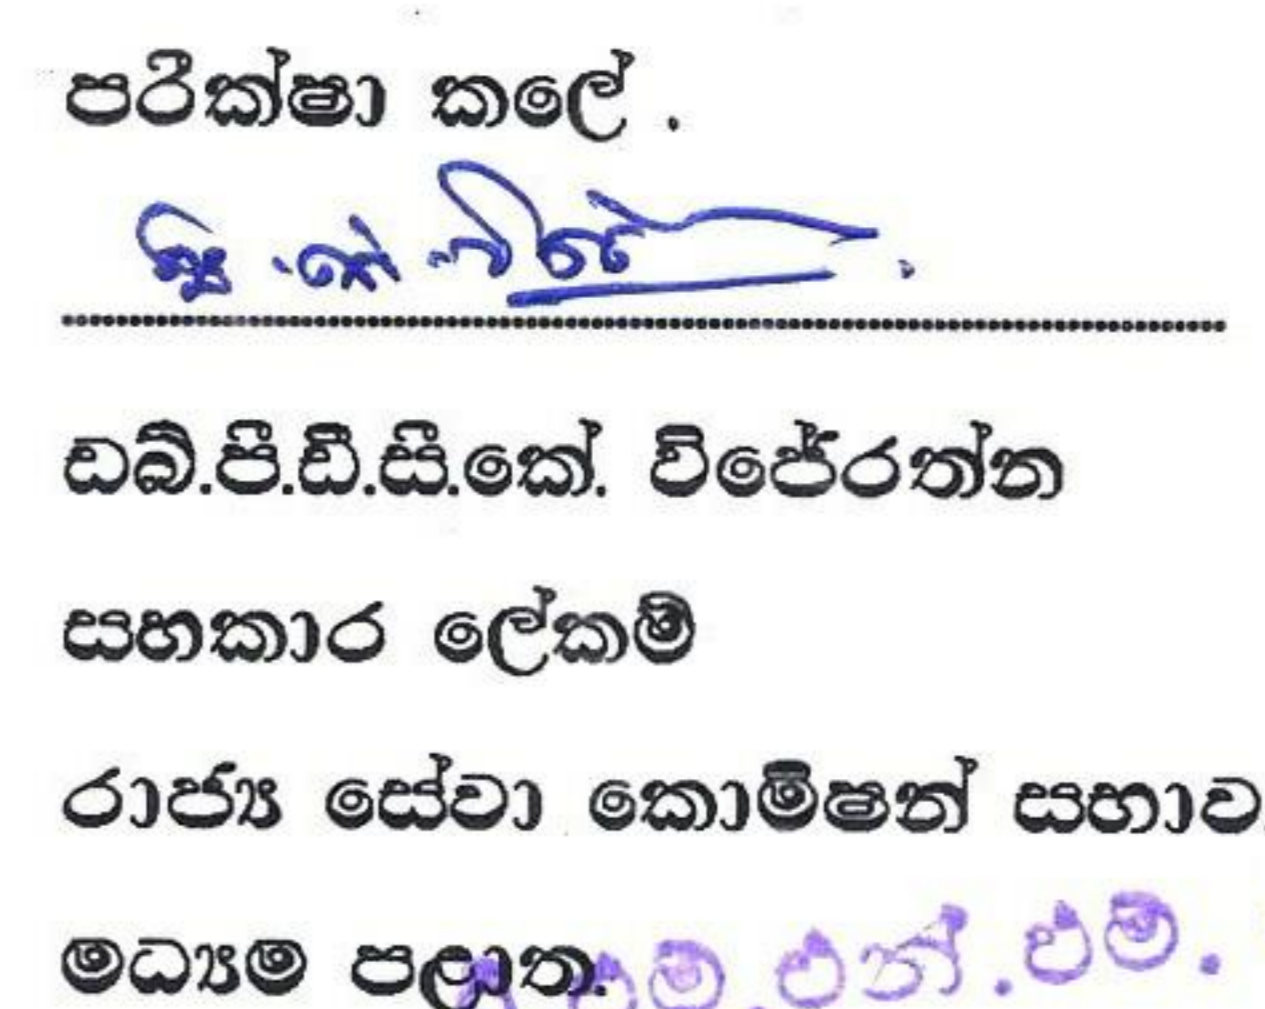 පරීක්ෂා කලේ .
ඩබ්.පී.ඩී.සී.කේ. විජේරත්න
සහකාර ලේකම්
රාජ්‍ය සේවා කොමිෂන් සභාව
මධ්‍යම පළාත.
එම්.එන්.එම්.